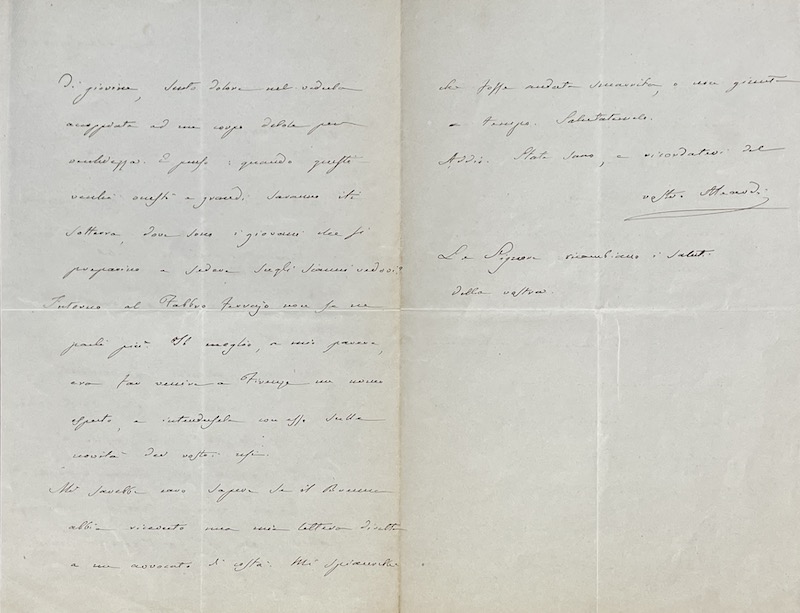 Di giovine, sento dolore nel vederla
accoppiata ad un corpo debole per
vecchiezza. E penso: quando questi
vecchi onesti e grandi saranno iti
sotterra, dove sono i giovani che si
preparino a sedere sugli scanni vedovi?
Intorno al Fabbro ferrajo non se ne
parli più. Il meglio, a mio parere,
era far venire a Firenze un uomo
esperto, e intendersela con esso sulla
novità dei vostri usi.
Mi sarebbe caro sapere se il
abbia ricevuto una mia lettera diretta
a un avvocato di costà. Mi spiacerebbe
che fosse andata smarrita, o non giunta
a tempo. Salutatemelo.
Addio. State sano, e ricordatevi del
vostro
Le Signore ricambiano i saluti
della vostra.